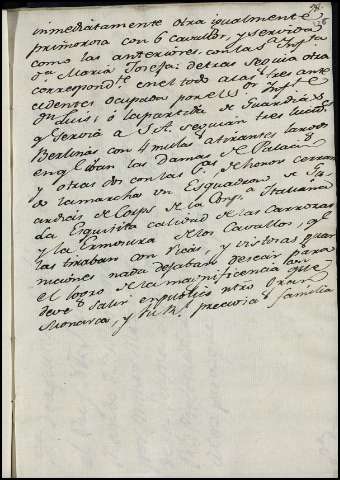 inmediatamente otra igualmente
primorosa con 6 cavallos, y servida
como las anteriores, con la S.ª Inf.ta
D.ª Maria Josefa: detras seguia otra
correspond.te en el todo a las tres ante
cedentes ocupada por el S.or Inf.te
D.n Luis; à la partida de Guardias
q.e servia a S.A. seguian tres lucidas
Berlinas con 4 mulas à tirantes largos
en q.e iban las Damas de Palacio
y otras dos con las de honor cerran
do la marcha un Esquadron de G.
ardias de Corps de la Comp.ª Italiana
La Exquisita calidad de las Carrozas
y la Ermosura de los Cavallos, q.e
las tiraban con ricas, y vistosas guar
niciones nada dejaban desear para
el logro de la magnificencia con que
deve salir en publico ntro Gran
Monarca, y su R.l preciosa familia